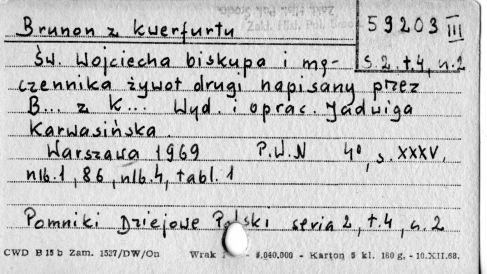 Brunon z Kwerfurtu
59203 III
Św. Wojciecha biskupa i mę-
S.2. t.4, n.2
czennika żywot drugi napisany przez
B... z K... Wyd. i oprac. Jadwiga
Karwasińska.
Warszawa 1969 P.W.N 4°, s. XXXV.
nlb.1, 86, nlb.4, tabl. 1
Pomniki Dziejowe Polski seria 2, t.4, n.2
CWD B 15 b Zam. 1527/DW/On Wrak - 5.040.000 - Karton 5 kl. 180 g, - 10.XII.68.